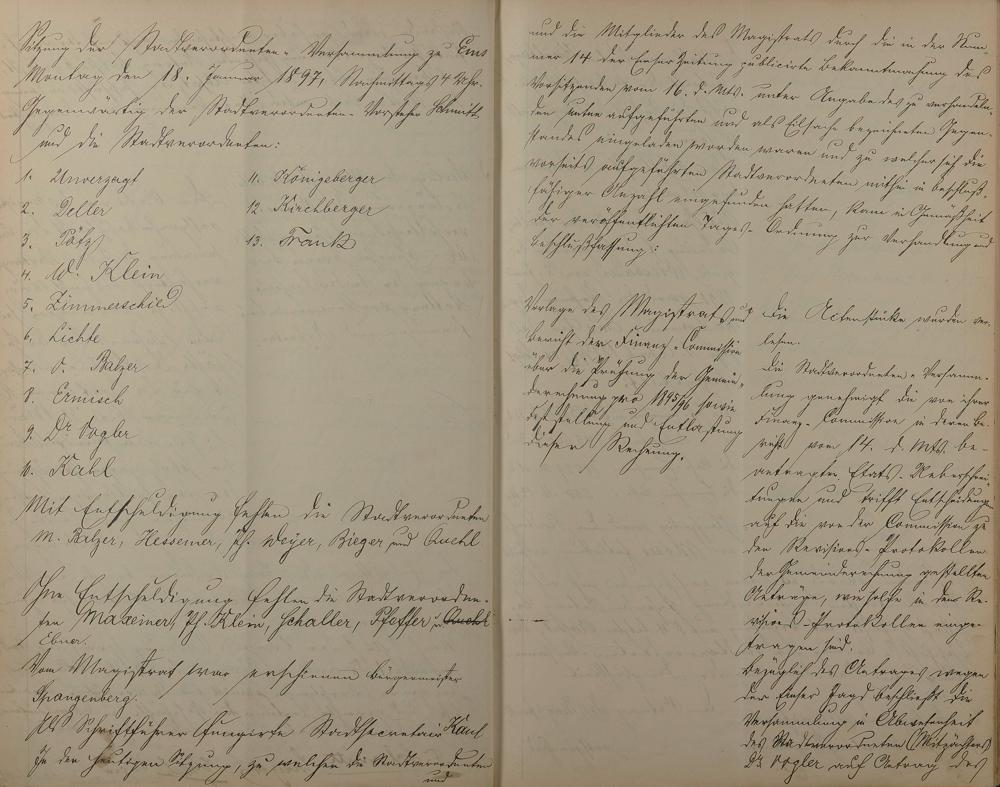 Sitzung der Stadtverordneten-Versammlung zu Ems
Montag den 18. Januar 1897, Nachmittags 4 Uhr.
Gegenwärtig der Stadtverordneten-Vorsteher Schmitt
und die Stadtverordneten:
1. Unverzagt
2. Deller
3. Pötz
4. W. Klein
5. Zimmerschied
6. Lichte
7. O. Balzer
8. Ermisch
9. Dr. Vogler
10. Kahl
11. Königsberger
12. Kirchberger
13. Frank
Mit Entschuldigung fehlen die Stadtverordneten
M. Balzer, Hessemer, Ph. Weyer, Bieger und Quehl
Ohne Entschuldigung fehlen die Stadtverordne-
ten Maxeiner, Ph. Klein, Schaller, Pfeffer u. Quehl
Ebner.
Vom Magistrat war erschienen Bürgermeister
Spangenberg.
Als Schriftführer fungirte Stadtsecretair Kaul
In der heutigen Sitzung, zu welcher die Stadtverordneten
und
und die Mitglieder des Magistrats durch die in der Num-
mer 14 der Emser Zeitung publicirte Bekanntmachung des
Vorsitzenden vom 16. d. Mts. unter Angabe des zu verhandeln-
den unten aufgeführten und als Eilsache bezeichneten Gegen-
standes eingeladen worden waren und zu welcher sich die
vorseits aufgeführten Stadtverordneten mithin in beschluß-
fähiger Anzahl eingefunden hatten, kam in Gemäßheit
der veröffentlichten Tages-Ordnung zur Verhandlung und
Beschlußfassung:
Vorlage des Magistrats und
Bericht der Finanz-Commission
über die Prüfung der Gemein-
derechnung pro 1895/96 sowie
Feststellung und Entlastung
dieser Rechnung.
Die Actenstücke wurden ver-
lesen.
Die Stadtverordneten-Versamm-
lung genehmigt die von ihrer
Finanz-Commission in deren Be-
richt vom 14. d. Mts. be-
antragten Etats-Ueberschrei-
tungen und trifft Entscheidung
auf die von der Commission zu
den Revisions-Protokollen
der Gemeinderechnung gestellten
Anträge, wie solche in den Re-
visions-Protokollen einge-
tragen sind.
Bezüglich des Antrages wegen
der Emser Jagd beschließt die
Versammlung in Abwesenheit
des Stadtverordneten (Mitpächters)
Dr. Vogler auf Antrag des